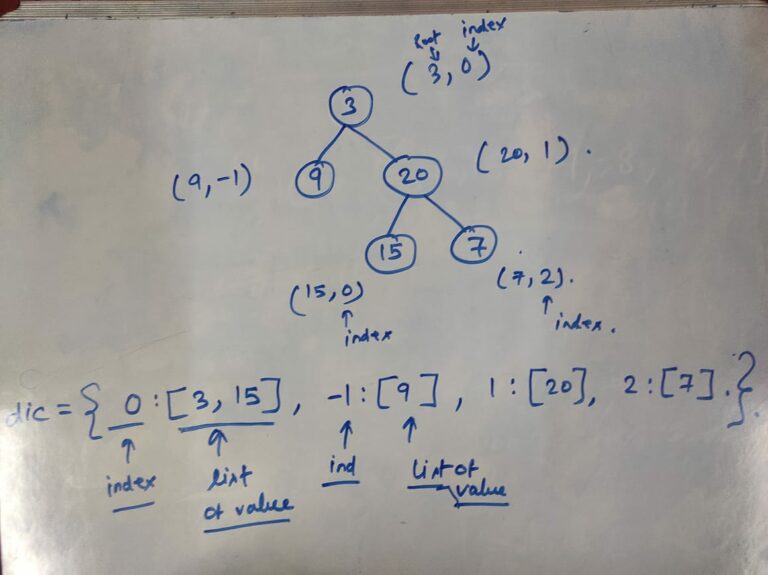 root index
(3, 0)
3
(9, -1) 9 20 (20, 1).
15 7
(15, 0) (7, 2).
index index.
dic = { 0 : [3, 15], -1 : [9], 1 : [20], 2 : [7].}.
index list of value ind list of value